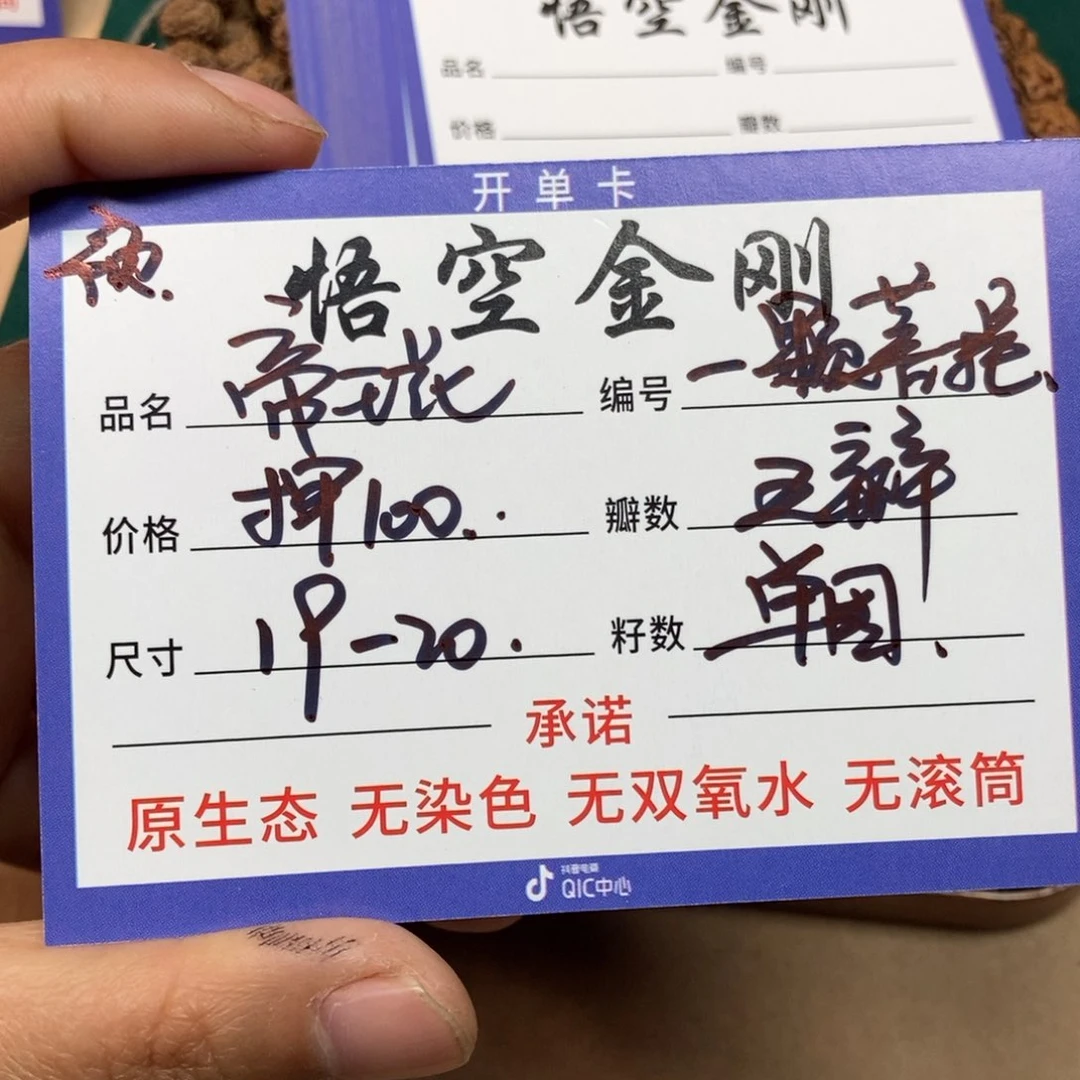 悟空金刚
品名 编号
价格 瓣数
开单卡
悟空金刚
品名 编号 一颗菩提、
价格 押100. 瓣数 五瓣
尺寸 19-20. 籽数 单圈、
承诺
原生态 无染色 无双氧水 无滚筒
抖音电商
QIC中心